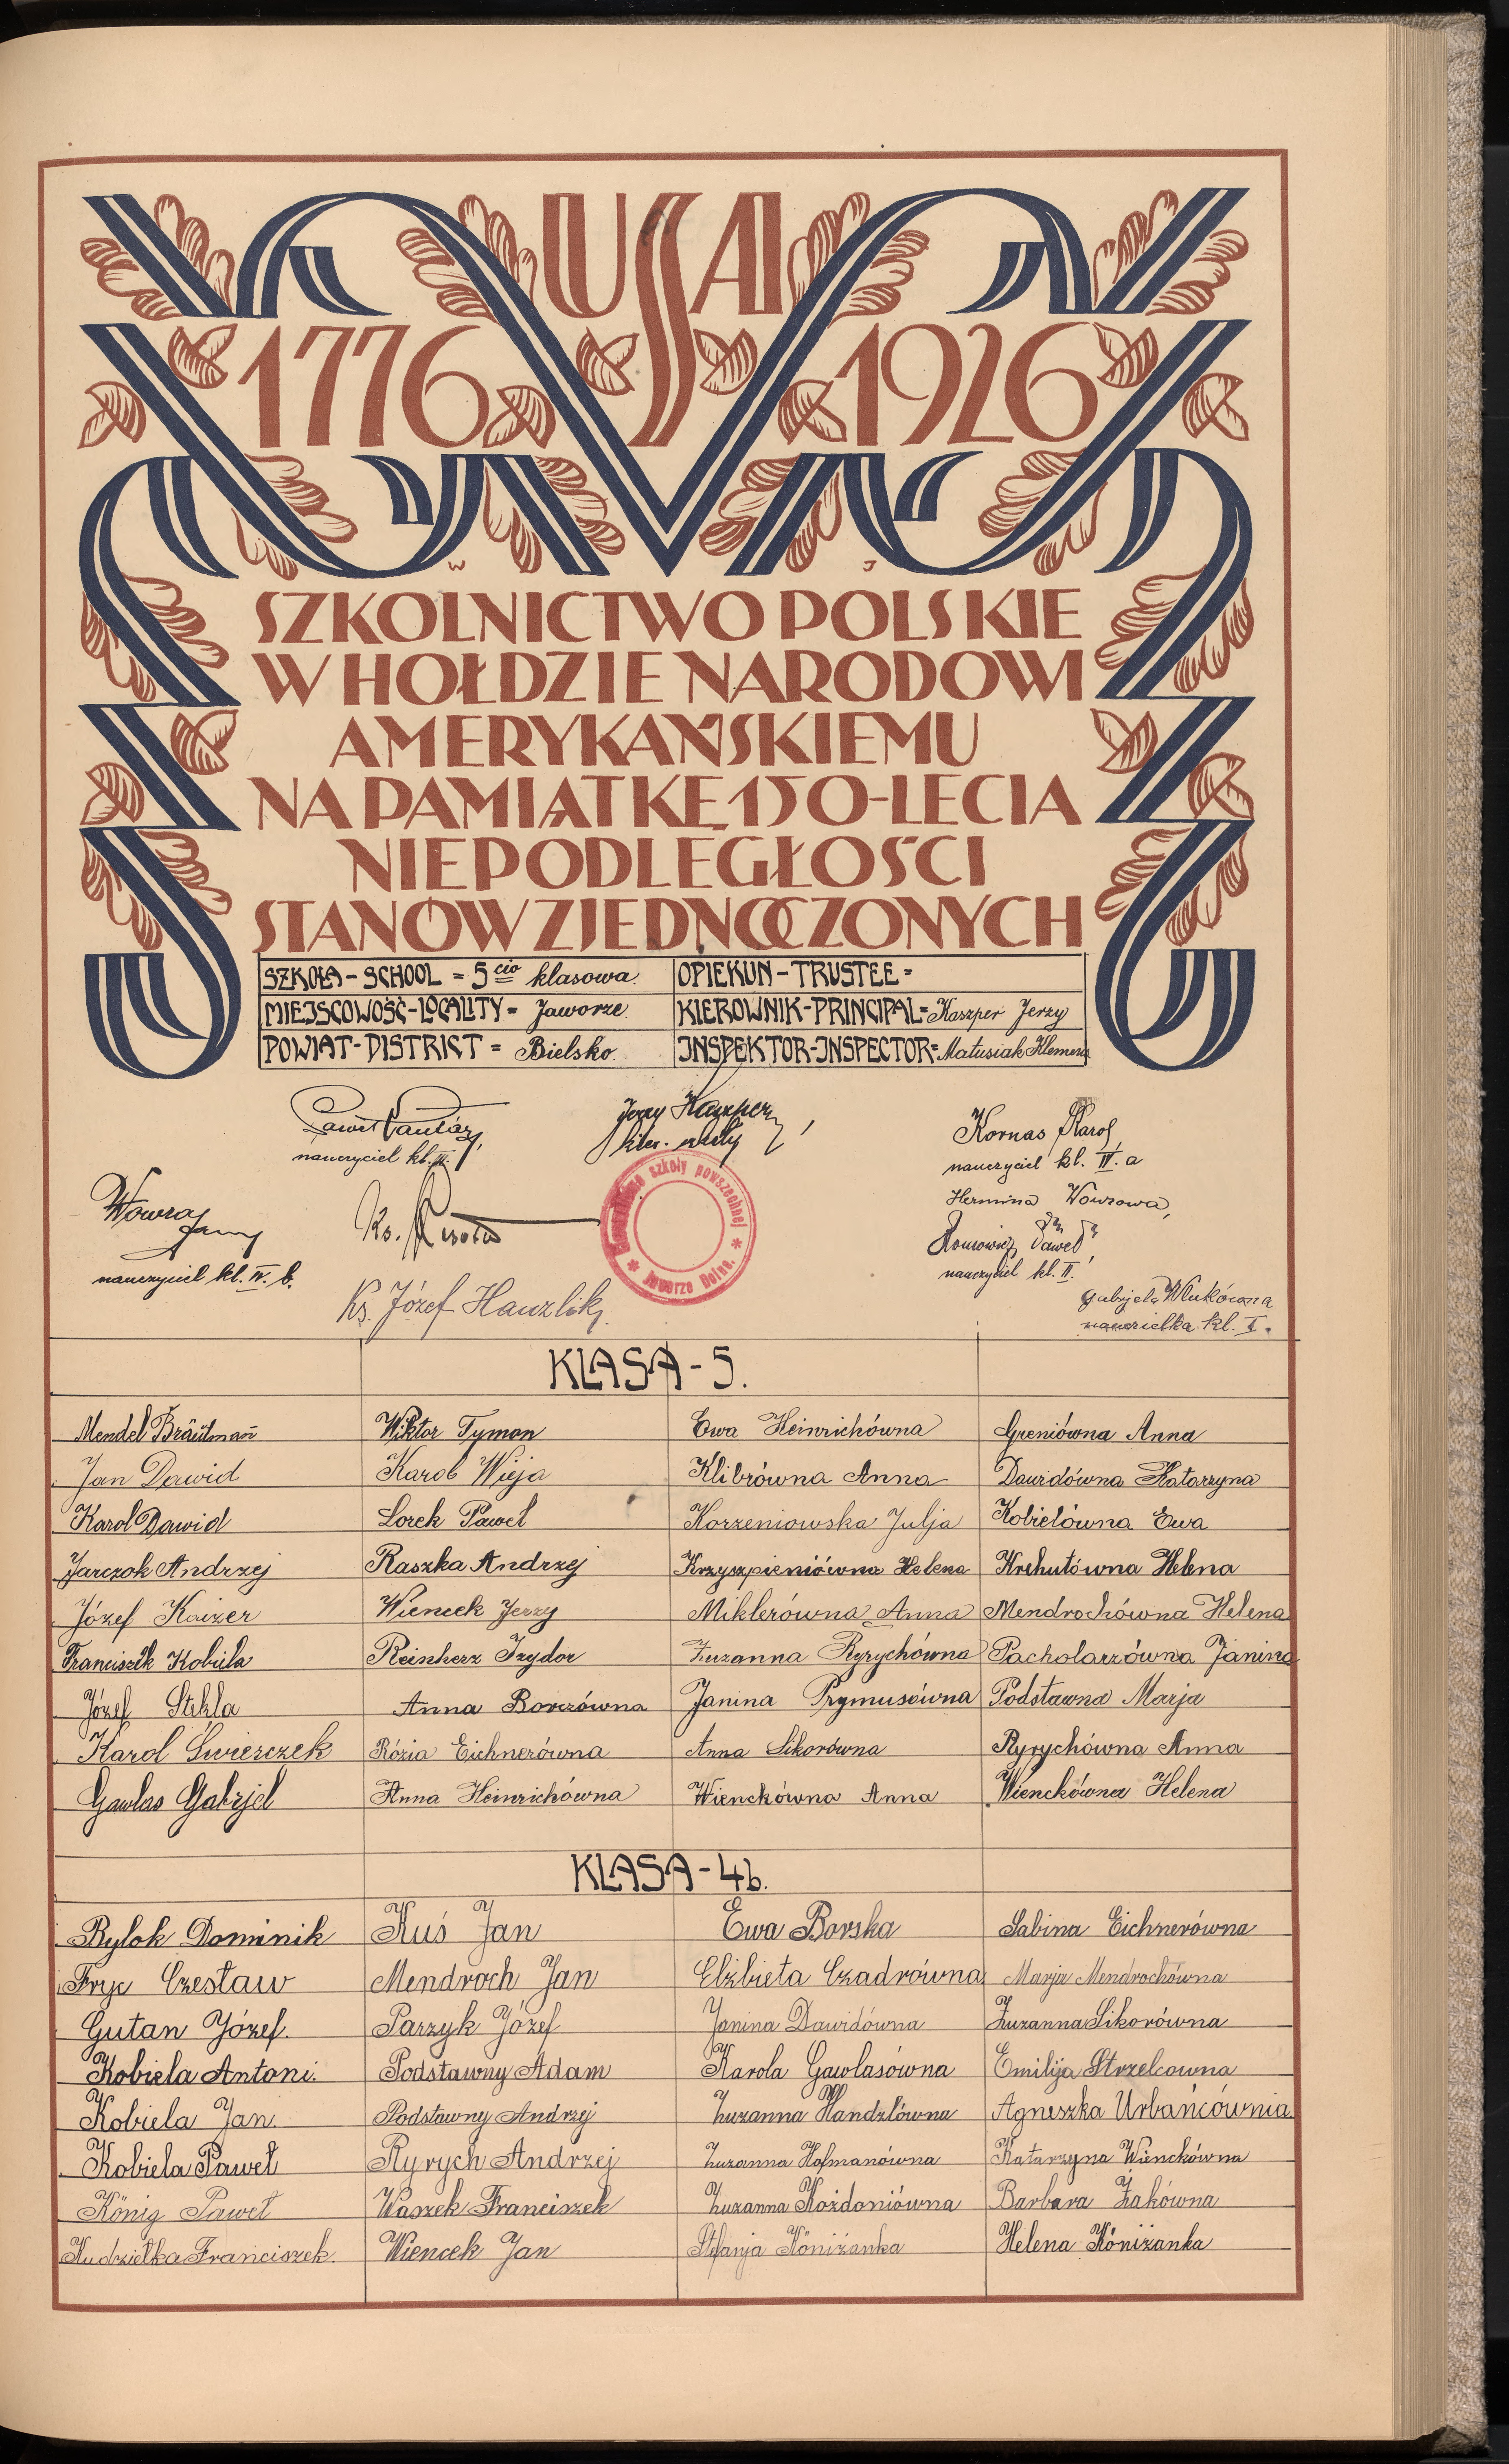 USA
1776 1926
W J
SZKOLNICTWO POLSKIE
W HOŁDZIE NARODOWI
AMERYKAŃSKIEMU
NA PAMIĄTKĘ 150-LECIA
NIEPODLEGŁOŚCI
STANÓW ZJEDNOCZONYCH
SZKOŁA-SCHOOL = 5 cio klasowa. OPIEKUN-TRUSTEE=
MIEJSCOWOŚĆ-LOCALITY= Jaworze. KIEROWNIK-PRINCIPAL= Kaszper Jerzy
POWIAT-DISTRICT = Bielsko. INSPEKTOR-INSPECTOR= Matusiak Klemens
Jerzy Kaszper
kier. szkoły
Kornas Karol
nauczyciel kl. III. nauczyciel kl. IV. a
Hermina Wowrowa,
Wowra Jerzy Ks.
Paweł
nauczyciel kl. IV. b. nauczyciel kl. II.
Kierownictwo szkoły powszechnej * Jaworze Dolne. *
Ks. Józef Hanzlik
Gabrjela Wlukówna
nauczielka kl. I.
KLASA - 5.
Mendel Bräutman Wiktor Tymon Ewa Heinrichówna Greniówna Anna
Jan Dawid Karol Wieja Klibrówna Anna Dawidówna Katarzyna
Karol Dawid Lorek Paweł Korzeniowska Julja Kobielówna Ewa
Jarczok Andrzej Raszka Andrzej Krzyszpieniówna Helena Krehutówna Helena
Józef Kaizer Wiencek Jerzy Miklerówna Anna Mendrochówna Helena
Franciszek Kobiela Reinherz Izydor Zuzanna Ryrychówna Pacholarzówna Janina
Józef Stekla Anna Borzówna Janina Prymusówna Podstawna Marja
Karol Świerczek Rózia Eichnerówna Anna Sikorówna Ryrychówna Anna
Gawlas Gabrjel Anna Heinrichówna Wienckówna Anna Wienckówna Helena
KLASA - 4b.
Bylok Dominik Kuś Jan Ewa Borska Sabina Eichnerówna
Fryc Czesław Mendroch Jan Elżbieta Czadrówna Marja Mendrochówna
Gutan Józef. Parzyk Józef Janina Dawidówna Zuzanna Sikorówna
Kobiela Antoni. Podstawny Adam Karola Gawlasówna Emilija Strzelcowna
Kobiela Jan Podstawny Andrzej Zuzanna Handzlówna Agneszka Urbańcównia
Kobiela Paweł Ryrych Andrzej Zuzanna Hofmanówna Katarzyna Wienckówna
König Paweł Waszek Franciszek Zuzanna Kożdoniówna Barbara Żakówna
Kudziełka Franciszek. Wiencek Jan Stefanja Königżanka Helena Köniżanka